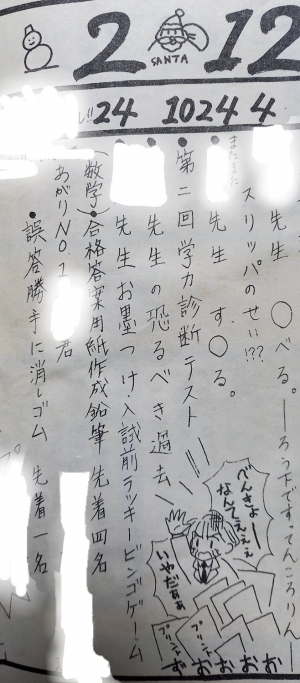 2 12
SANTA
!! 24 1024 4
先生 ○べる。ーろう下です。てんころりんー
スリッパのせい!??
またまた
先生 す○る。
●第二回学力診断テスト
●先生の恐るべき過去
先生お墨つけ・入試前ラッキービンゴゲーム
(数学)合格答案用紙作成鉛筆 先着四名
あがりNO1 君
●誤答勝手に消しゴム 先着一名
べんきょー
なんてぇぇぇ
いやだぁぁ
プリント
プリント
ずおおおお